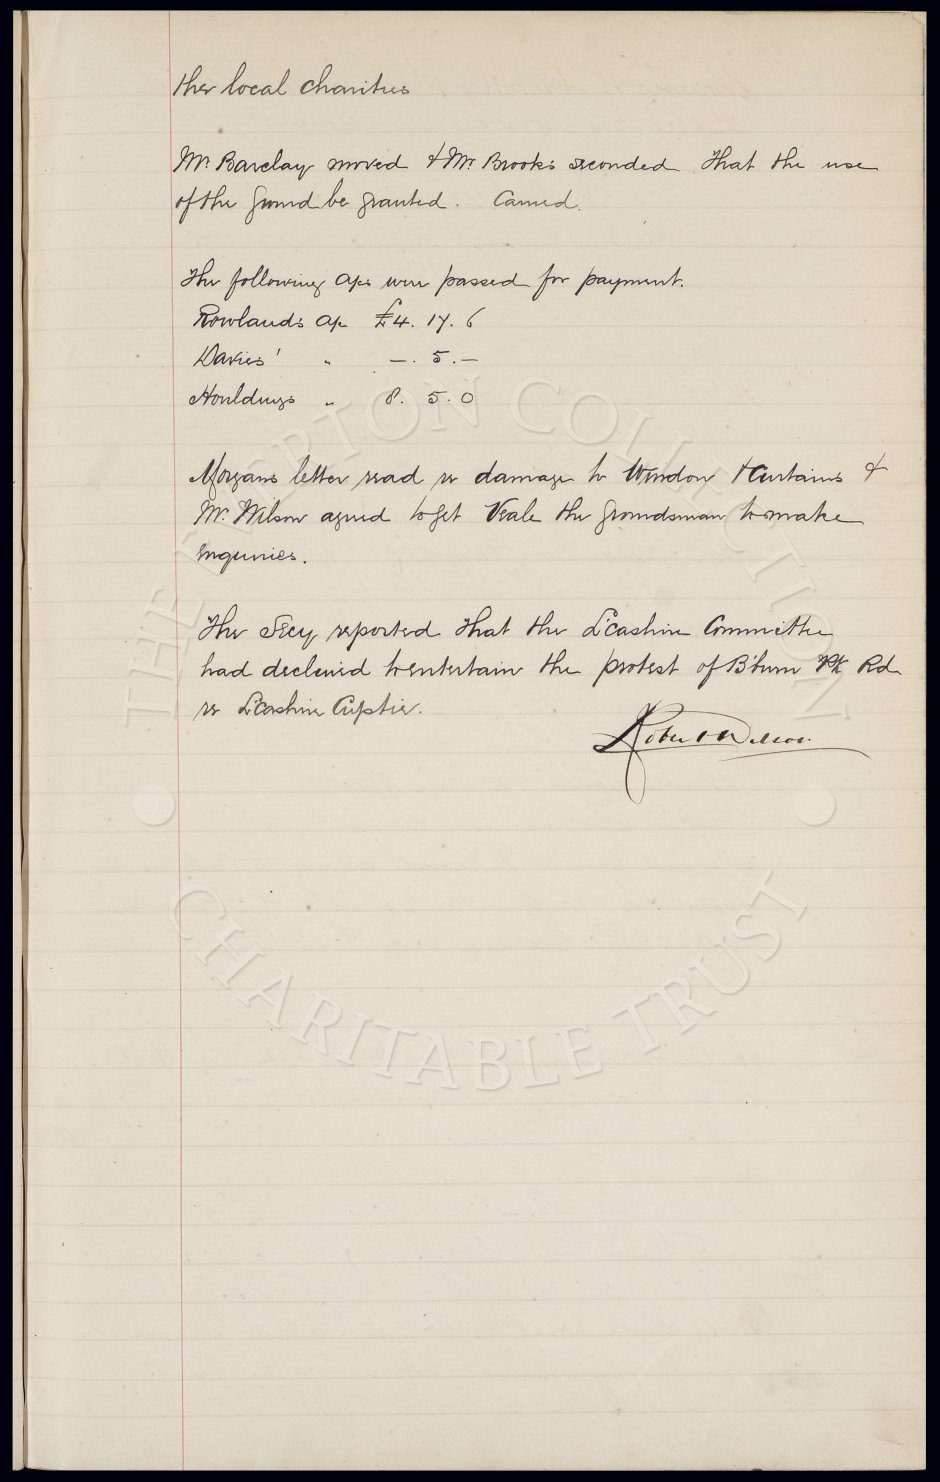 the local charities
Mr. Barclay moved & Mr. Brooks seconded that the use
of the ground be granted. Carried.
The following a/cs were passed for payment.
Rowlands a/c £4. 17. 6
Davies' " –. 5. –
Houldings " 8. 5. 0
Morgans letter read re damage to Window & Curtains &
Mr. Wilson agreed to get Veale the groundsman to make
inquiries.
The Secy reported that the L'cashire Committee
had declined to entertain the protest of B'burn Pk Rd
re L'cashire Cuptie.
Robert Wilson
THE EVERTON COLLECTION
CHARITABLE TRUST